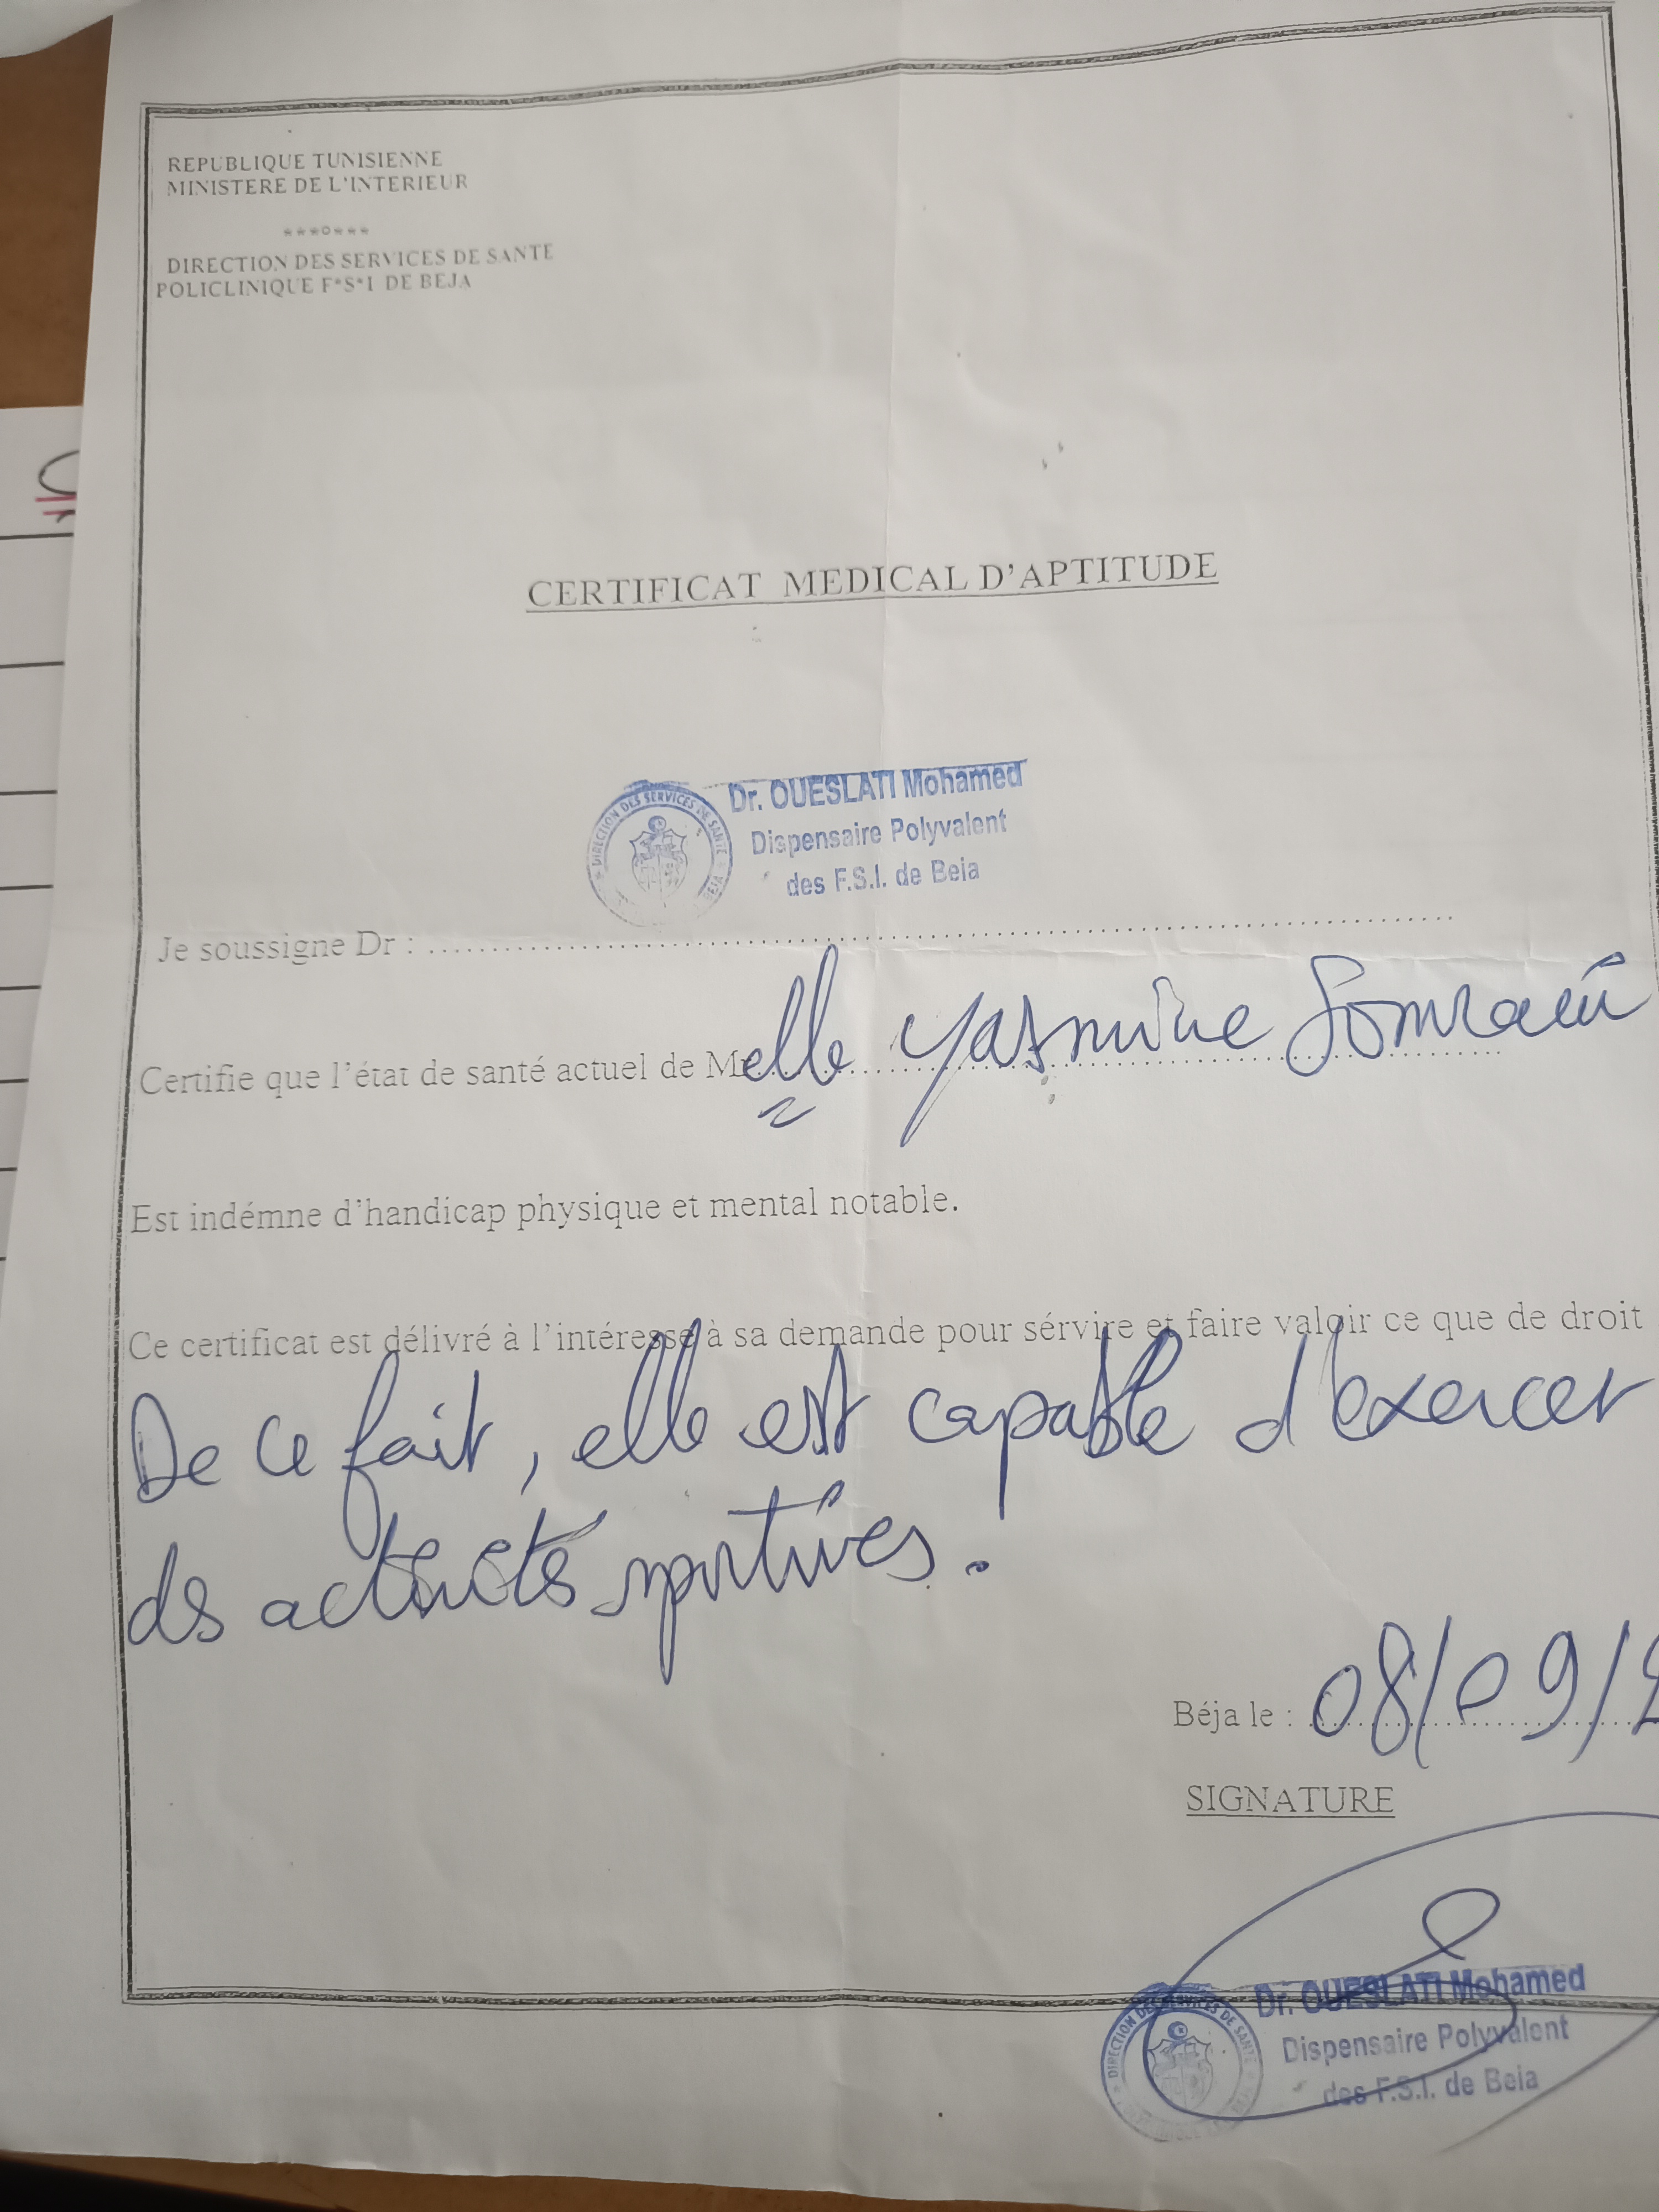 REPUBLIQUE TUNISIENNE
MINISTERE DE L'INTERIEUR
***O***
DIRECTION DES SERVICES DE SANTE
POLICLINIQUE F*S*I DE BEJA
CERTIFICAT MEDICAL D'APTITUDE
DIRECTION DES SERVICES DE SANTE
BEJA
Dr. OUESLATI Mohamed
Dispensaire Polyvalent
des F.S.I. de Beja
Je soussigne Dr : ........................................
Certifie que l'état de santé actuel de Melle Yasmine
Est indémne d'handicap physique et mental notable.
Ce certificat est délivré à l'intéressé à sa demande pour sérvire et faire valoir ce que de droit
De ce fait, elle est capable d'exercer
des activités sportives.
Béja le : 08/09/2
SIGNATURE
DIRECTION DES SERVICES DE SANTE
Dr. OUESLATI Mohamed
Dispensaire Polyvalent
des F.S.I. de Beja